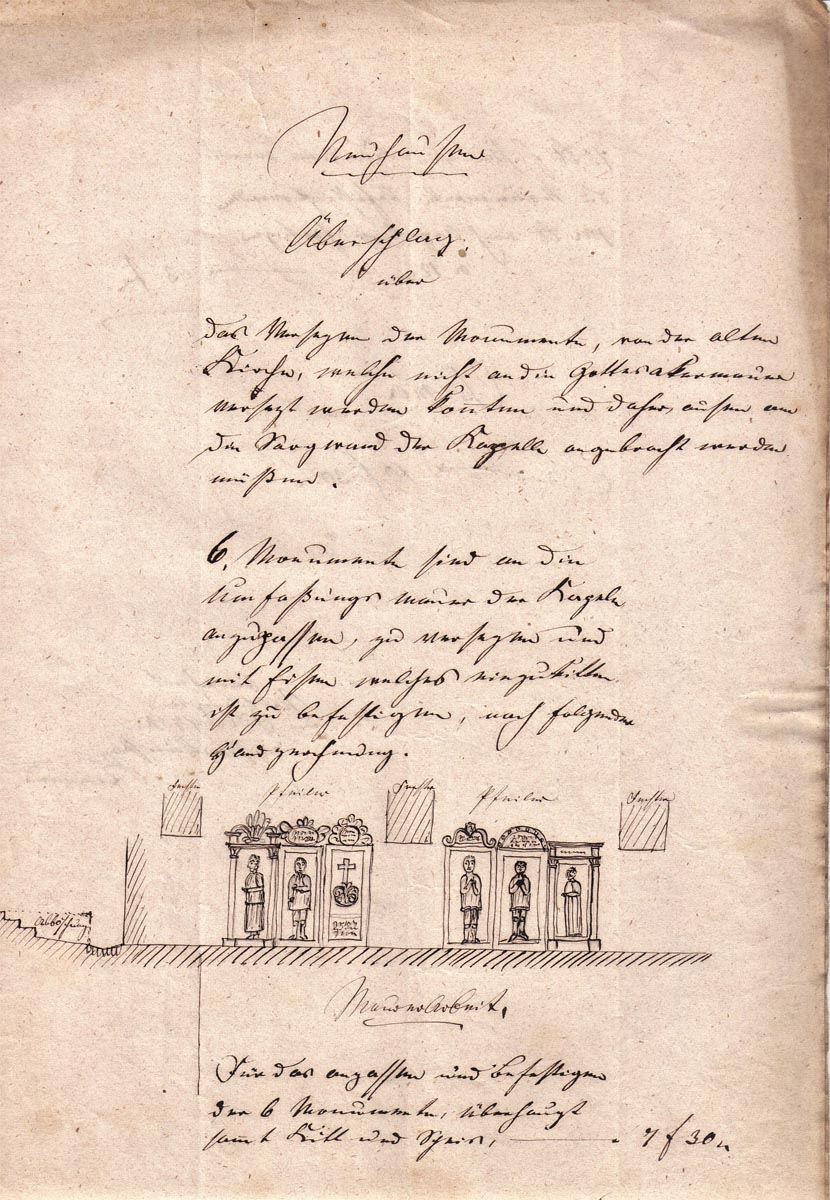 Neuhausen
Überschlag,
über
das Versezen der Monumente, von der alten
Kirche, welche nicht an die Gottesakermauer
versezt werden konten und daher, ausen an
die Sargwand der Kapelle angebracht werden
müßen.
6. Monumente sind an die
Umfaßungs mauer der Kapele
anzupassen, zu versezen und
mit Eisen welches einzukitten
ist zu befestigen, nach folgender
Handzeichnung.
Fenster Pfeiler Fenster Pfeiler Fenster
Abböschung
Maurer Arbeit,
Für das anpassen und befestigen
der 6 Monumente, überhaupt
samt Kitt und Speis, 7 f 30